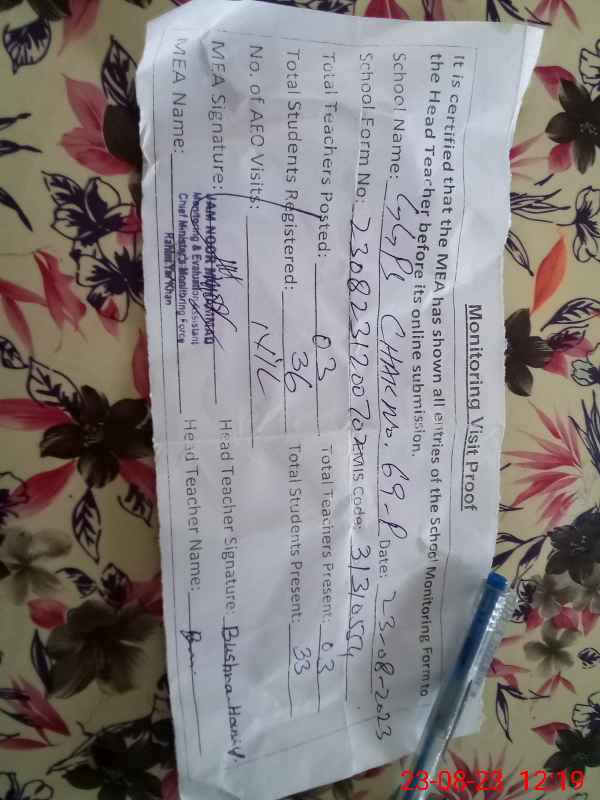 Monitoring Visit Proof
It is certified that the MEA has shown all entries of the School Monitoring Form to
the Head Teacher before its online submission.
School Name: GGPS CHAK no. 69-P Date: 23-08-2023
School Form No: EMIS Code: 31310554
Total Teachers Posted: 03 Total Teachers Present: 03
Total Students Registered: 36 Total Students Present: 33
No. of AEO Visits: NIL
MEA Signature: Head Teacher Signature: Bushra Hanif.
MEA Name: Head Teacher Name:
JAM NOOR MUHAMMAD
Monitoring & Evaluation Assistant
Chief Minister's Monitoring Force
Rahim Yar Khan
23-08-23 12:19